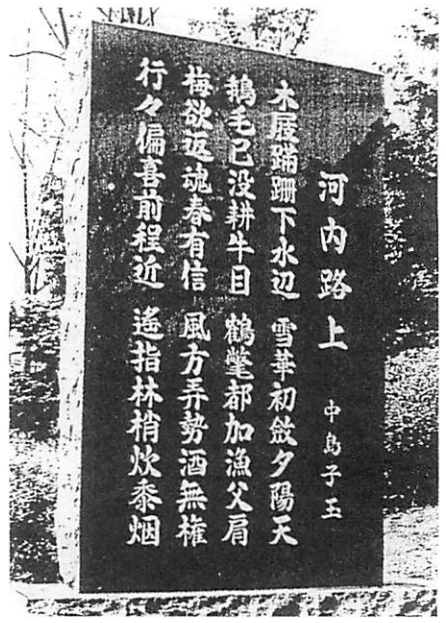 河内路上 中島子玉
木屐蹣跚下水辺 雪華初斂夕陽天
鵝毛已没耕牛目 鶴氅都加漁父肩
梅欲返魂春有信 風方弄勢酒無権
行々偏喜前程近 遙指林梢炊黍烟